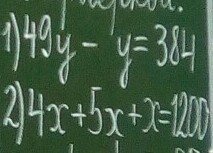 1) 49y - y = 384
2) 4x + 5x + x = 1200